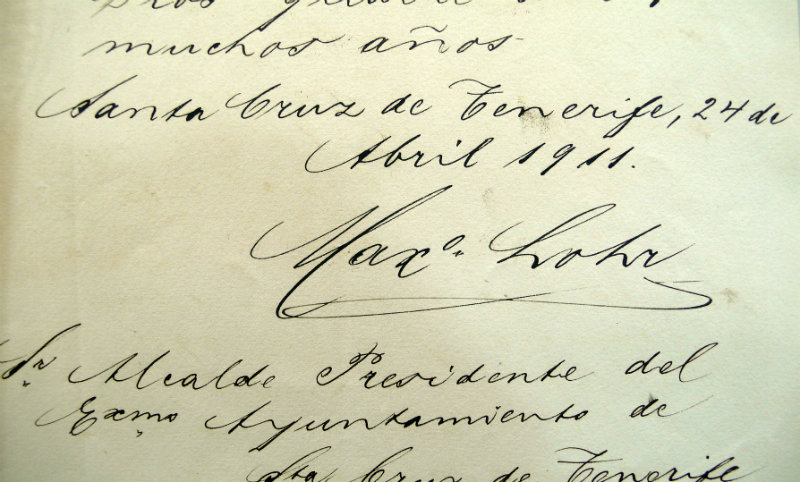 Dios guarde
muchos años
Santa Cruz de Tenerife, 24 de
Abril 1911.
Maxº. Lohr
Sr. Alcalde Presidente del
Exmo Ayuntamiento de
Sta Cruz de Tenerife